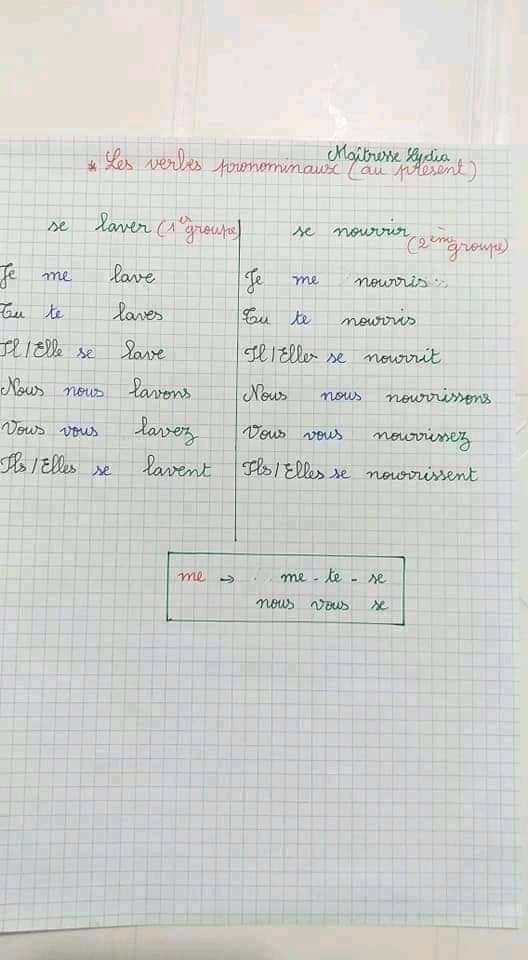 Maîtresse Lydia
* Les verbes pronominaux (au présent)
se laver (1er groupe)
Je me lave
Tu te laves
Il/Elle se lave
Nous nous lavons
Vous vous lavez
Ils/Elles se lavent
se nourrir (2ème groupe)
Je me nourris
Tu te nourris
Il/Elle se nourrit
Nous nous nourrissons
Vous vous nourrissez
Ils/Elles se nourrissent
me → me - te - se
nous vous se